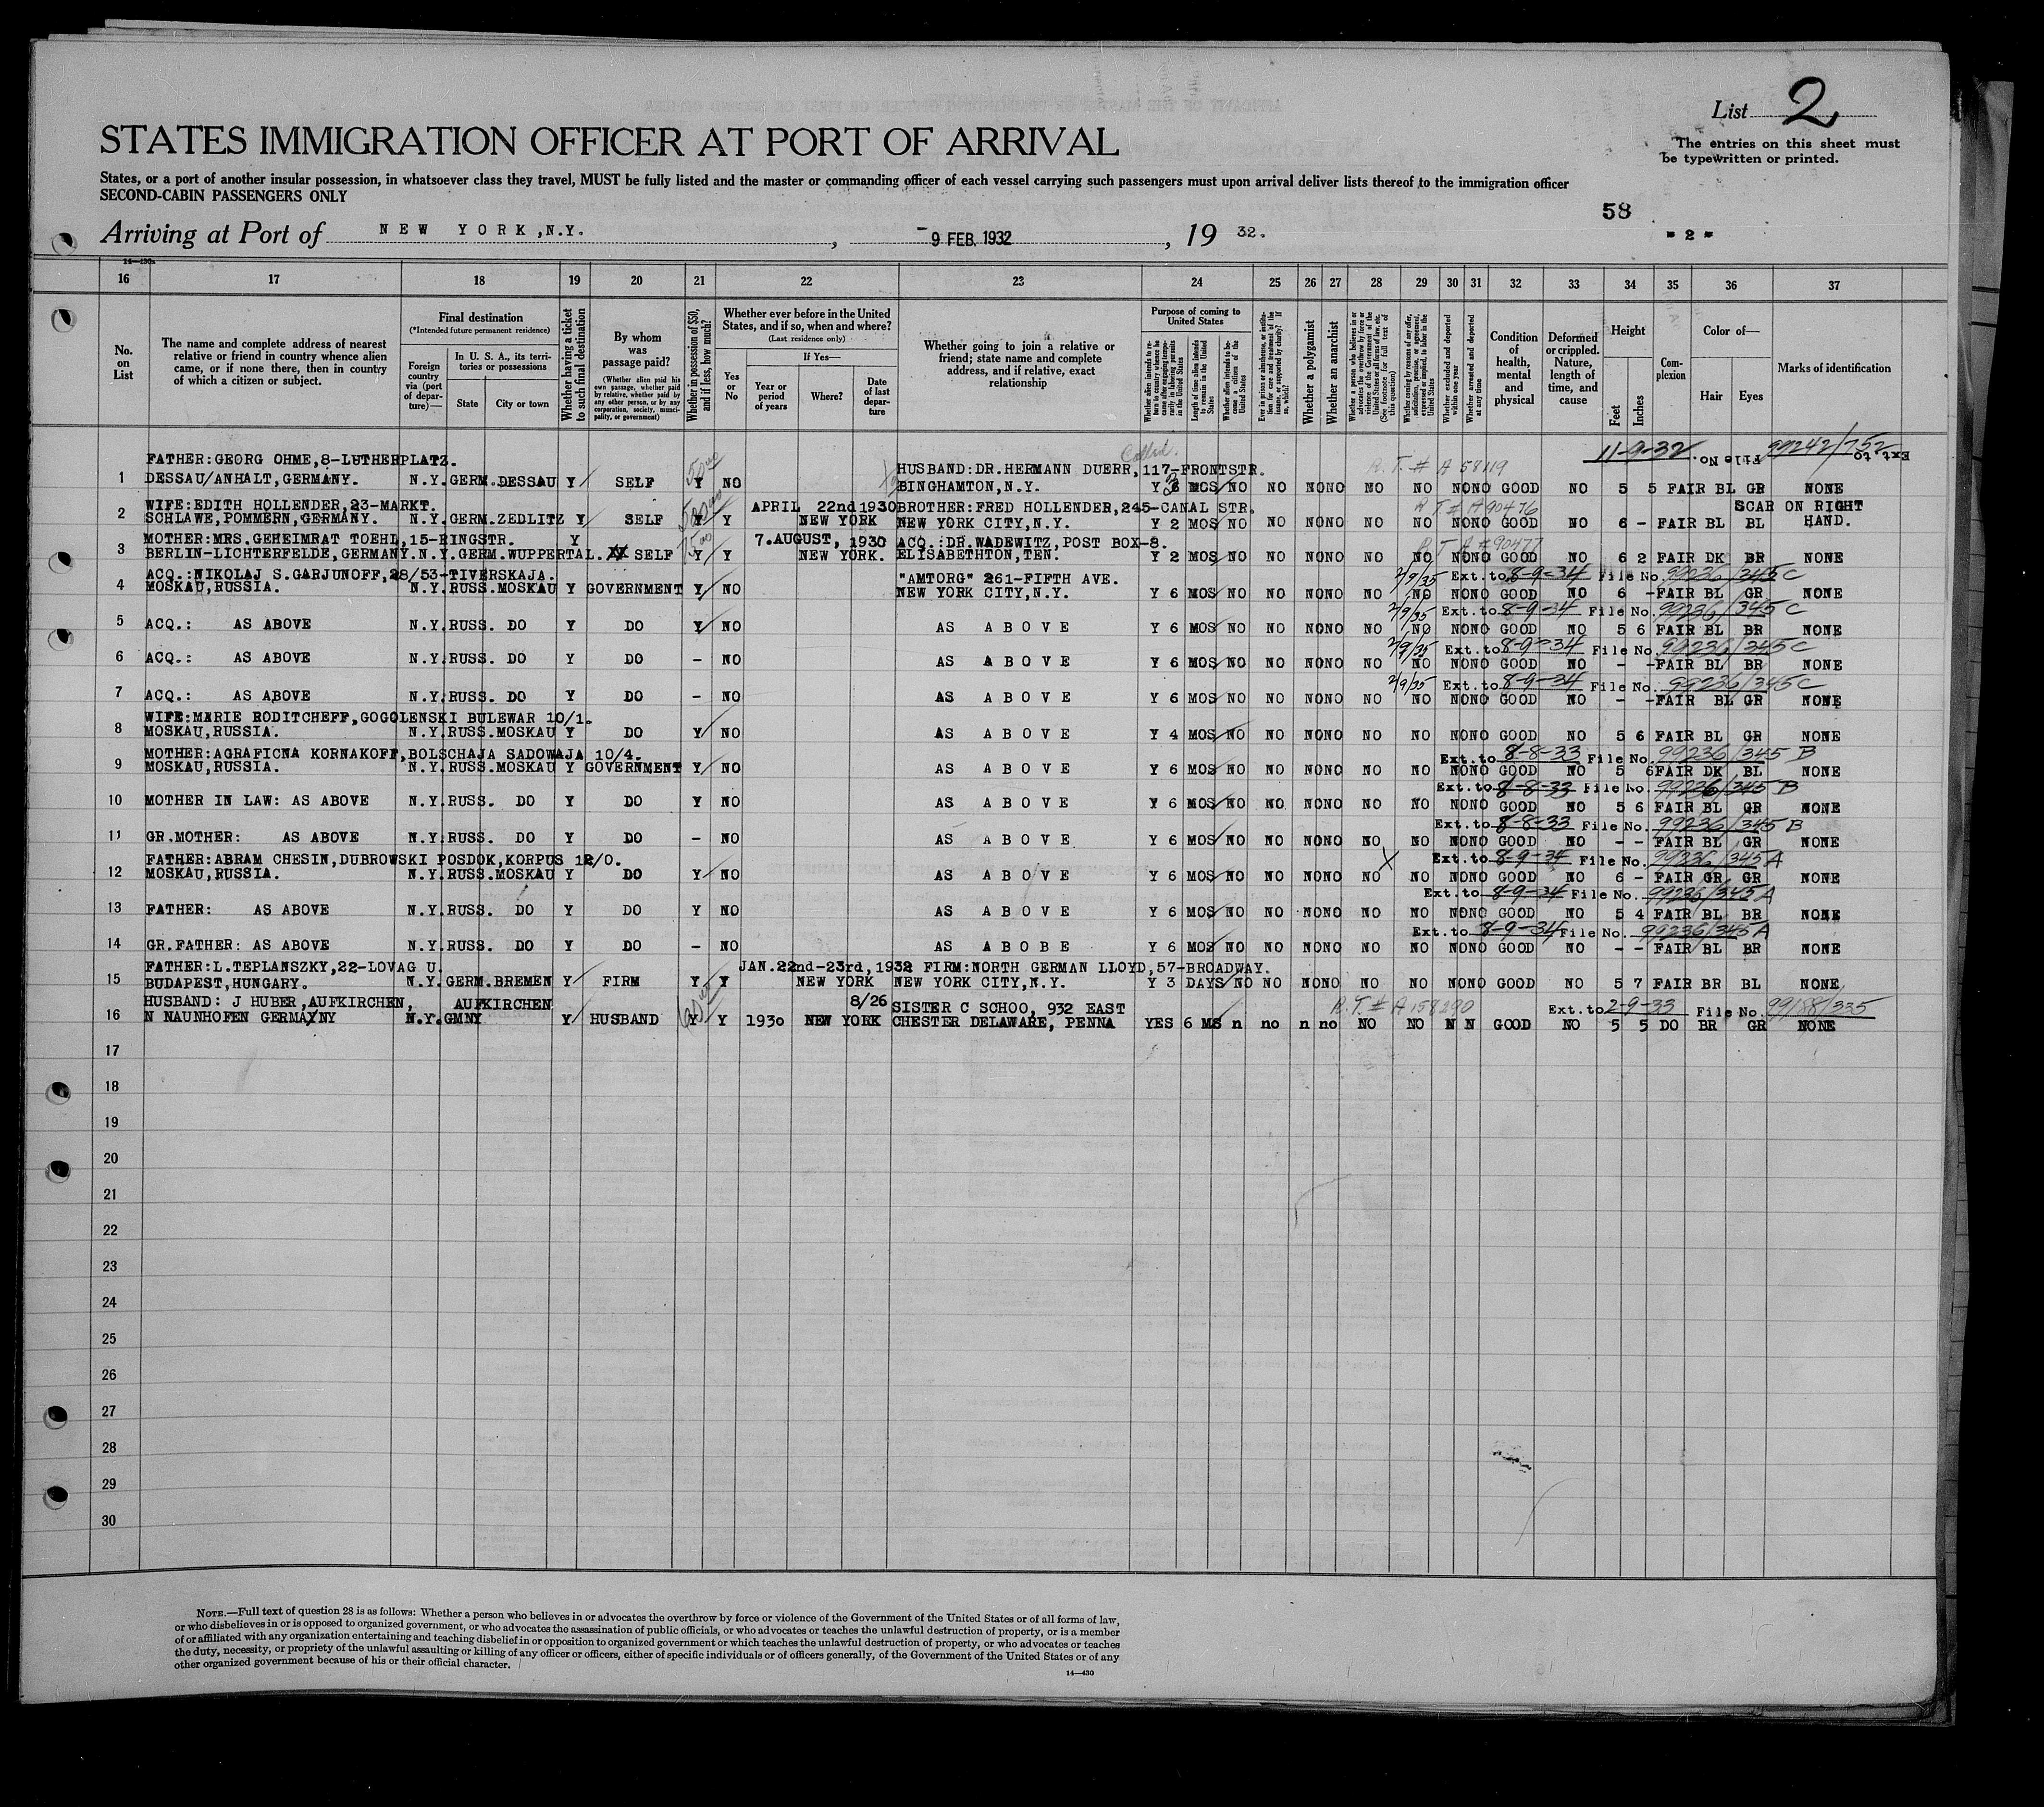 List 2
The entries on this sheet must
be typewritten or printed.
STATES IMMIGRATION OFFICER AT PORT OF ARRIVAL
States, or a port of another insular possession, in whatsoever class they travel, MUST be fully listed and the master or commanding officer of each vessel carrying such passengers must upon arrival deliver lists thereof to the immigration officer
SECOND-CABIN PASSENGERS ONLY
58
Arriving at Port of NEW YORK,N.Y. , 9 FEB. 1932 , 19 32.
- 2 -
16 17 18 19 20 21 22 23 24 25 26 27 28 29 30 31 32 33 34 35 36 37
No. on List
The name and complete address of nearest relative or friend in country whence alien came, or if none there, then in country of which a citizen or subject.
Final destination
(*Intended future permanent residence)
Foreign country via (port of departure)—
In U. S. A., its territories or possessions
State
City or town
Whether having a ticket to such final destination
By whom was passage paid?
(Whether alien paid his own passage, whether paid by relative, whether paid by any other person, or by any corporation, society, municipality, or government)
Whether in possession of $50, and if less, how much?
Whether ever before in the United States, and if so, when and where?
(Last residence only)
If Yes—
Yes or No
Year or period of years
Where?
Date of last departure
Whether going to join a relative or friend; state name and complete address, and if relative, exact relationship
Purpose of coming to United States
Whether alien intends to return to country whence he came after engaging temporarily in laboring pursuits in the United States
Length of time alien intends to remain in the United States
Whether alien intends to become a citizen of the United States
Whether a polygamist
Whether an anarchist
Whether excluded and deported within one year
Whether arrested and deported at any time
Condition of health, mental and physical
Deformed or crippled. Nature, length of time, and cause
Height
Feet
Inches
Complexion
Color of—
Hair
Eyes
Marks of identification
11-9-32 File No. 99242/752 Ext.to
FATHER:GEORG OHME,8-LUTHERPLATZ. HUSBAND:DR.HERMANN DUERR,117-FRONTSTR. R.T.# A 58119
1 DESSAU/ANHALT,GERMANY. N.Y.GERM.DESSAU Y SELF Y NO BINGHAMTON,N.Y. Y 6 MOS NO NO NONO NO NO NONO GOOD NO 5 5 FAIR BL GR NONE
WIFE:EDITH HOLLENDER,23-MARKT. APRIL 22nd 1930 BROTHER:FRED HOLLENDER,245-CANAL STR. R T # A 90476 SCAR ON RIGHT
2 SCHLAWE,POMMERN,GERMANY. N.Y.GERM.ZEDLITZ Y SELF Y Y NEW YORK NEW YORK CITY,N.Y. Y 2 MOS NO NO NONO NO NO NONO GOOD NO 6 - FAIR BL BL HAND.
MOTHER:MRS.GEHEIMRAT TOEHL,15-RINGSTR. Y 7.AUGUST, 1930 ACQ.:DR.WADEWITZ,POST BOX-8. R T A # 90477
3 BERLIN-LICHTERFELDE,GERMANY.N.Y.GERM.WUPPERTAL. SELF Y Y NEW YORK. ELISABETHTON,TEN. Y 2 MOS NO NO NONO NO NO NONO GOOD NO 6 2 FAIR DK BR NONE
ACQ.:NIKOLAJ S.GARJUNOFF,28/53-TIVERSKAJA. "AMTORG" 261-FIFTH AVE. 2/9/35 Ext.to 8-9-34 File No. 99236/345 C
4 MOSKAU,RUSSIA. N.Y.RUSS.MOSKAU Y GOVERNMENT Y NO NEW YORK CITY,N.Y. Y 6 MOS NO NO NONO NO NO NONO GOOD NO 6 - FAIR BL GR NONE
2/9/35 Ext.to 8-9-34 File No. 99236/345 C
5 ACQ.: AS ABOVE N.Y.RUSS. DO Y DO Y NO AS A B O V E Y 6 MOS NO NO NONO NO NO NONO GOOD NO 5 6 FAIR BL BR NONE
2/9/35 Ext.to 8-9-34 File No. 99236/345 C
6 ACQ.: AS ABOVE N.Y.RUSS. DO Y DO - NO AS A B O V E Y 6 MOS NO NO NONO NO NO NONO GOOD NO - - FAIR BL BR NONE
2/9/35 Ext.to 8-9-34 File No. 99236/345 C
7 ACQ.: AS ABOVE N.Y.RUSS. DO Y DO - NO AS A B O V E Y 6 MOS NO NO NONO NO NO NONO GOOD NO - - FAIR BL GR NONE
WIFE:MARIE RODITCHEFF,GOGOLENSKI BULEWAR 10/1.
8 MOSKAU,RUSSIA. N.Y.RUSS.MOSKAU Y DO Y NO AS A B O V E Y 4 MOS NO NO NONO NO NO NONO GOOD NO 5 6 FAIR BL GR NONE
MOTHER:AGRAFICNA KORNAKOFF,BOLSCHAJA SADOWAJA 10/4. Ext.to 8-8-33 File No. 99236/345 B
9 MOSKAU,RUSSIA. N.Y.RUSS.MOSKAU Y GOVERNMENT Y NO AS A B O V E Y 6 MOS NO NO NONO NO NO NONO GOOD NO 5 6 FAIR DK BL NONE
Ext.to 8-8-33 File No. 99236/345 B
10 MOTHER IN LAW: AS ABOVE N.Y.RUSS. DO Y DO Y NO AS A B O V E Y 6 MOS NO NO NONO NO NO NONO GOOD NO 5 6 FAIR BL GR NONE
Ext.to 8-8-33 File No. 99236/345 B
11 GR.MOTHER: AS ABOVE N.Y.RUSS. DO Y DO - NO AS A B O V E Y 6 MOS NO NO NONO NO NO NONO GOOD NO - - FAIR BL GR NONE
FATHER:ABRAM CHESIN,DUBROWSKI POSDOK,KORPUS 12/0. Ext.to 8-9-34 File No. 99236/345 A
12 MOSKAU,RUSSIA. N.Y.RUSS.MOSKAU Y DO Y NO AS A B O V E Y 6 MOS NO NO NONO NO NO NONO GOOD NO 6 - FAIR GR GR NONE
Ext.to 8-9-34 File No. 99236/345 A
13 FATHER: AS ABOVE N.Y.RUSS. DO Y DO Y NO AS A B O V E Y 6 MOS NO NO NONO NO NO NONO GOOD NO 5 4 FAIR BL BR NONE
Ext.to 8-9-34 File No. 99236/345 A
14 GR.FATHER: AS ABOVE N.Y.RUSS. DO Y DO - NO AS A B O B E Y 6 MOS NO NO NONO NO NO NONO GOOD NO - - FAIR BL BR NONE
FATHER:L.TEPLANSZKY,22-LOVAG U. JAN.22nd-23rd,1932 FIRM:NORTH GERMAN LLOYD,57-BROADWAY.
15 BUDAPEST,HUNGARY. N.Y.GERM.BREMEN Y FIRM Y Y NEW YORK NEW YORK CITY,N.Y. Y 3 DAYS NO NO NONO NO NO NONO GOOD NO 5 7 FAIR BR BL NONE
HUSBAND: J HUBER,AUFKIRCHEN, AUFKIRCHEN 8/26 SISTER C SCHOO, 932 EAST R.T.# A 158290 Ext.to 2-9-33 File No. 99188/335
16 N NAUNHOFEN GERMANY N.Y.GMNY Y HUSBAND Y Y 1930 NEW YORK CHESTER DELAWARE, PENNA YES 6 MS n no n no NO NO N N GOOD NO 5 5 DO BR GR NONE
17
18
19
20
21
22
23
24
25
26
27
28
29
30
NOTE.—Full text of question 28 is as follows: Whether a person who believes in or advocates the overthrow by force or violence of the Government of the United States or of all forms of law,
or who disbelieves in or is opposed to organized government, or who advocates the assassination of public officials, or who advocates or teaches the unlawful destruction of property, or is a member
of or affiliated with any organization entertaining and teaching disbelief in or opposition to organized government or which teaches the unlawful destruction of property, or who advocates or teaches
the duty, necessity, or propriety of the unlawful assaulting or killing of any officer or officers, either of specific individuals or of officers generally, of the Government of the United States or of any
other organized government because of his or their official character.
14—430